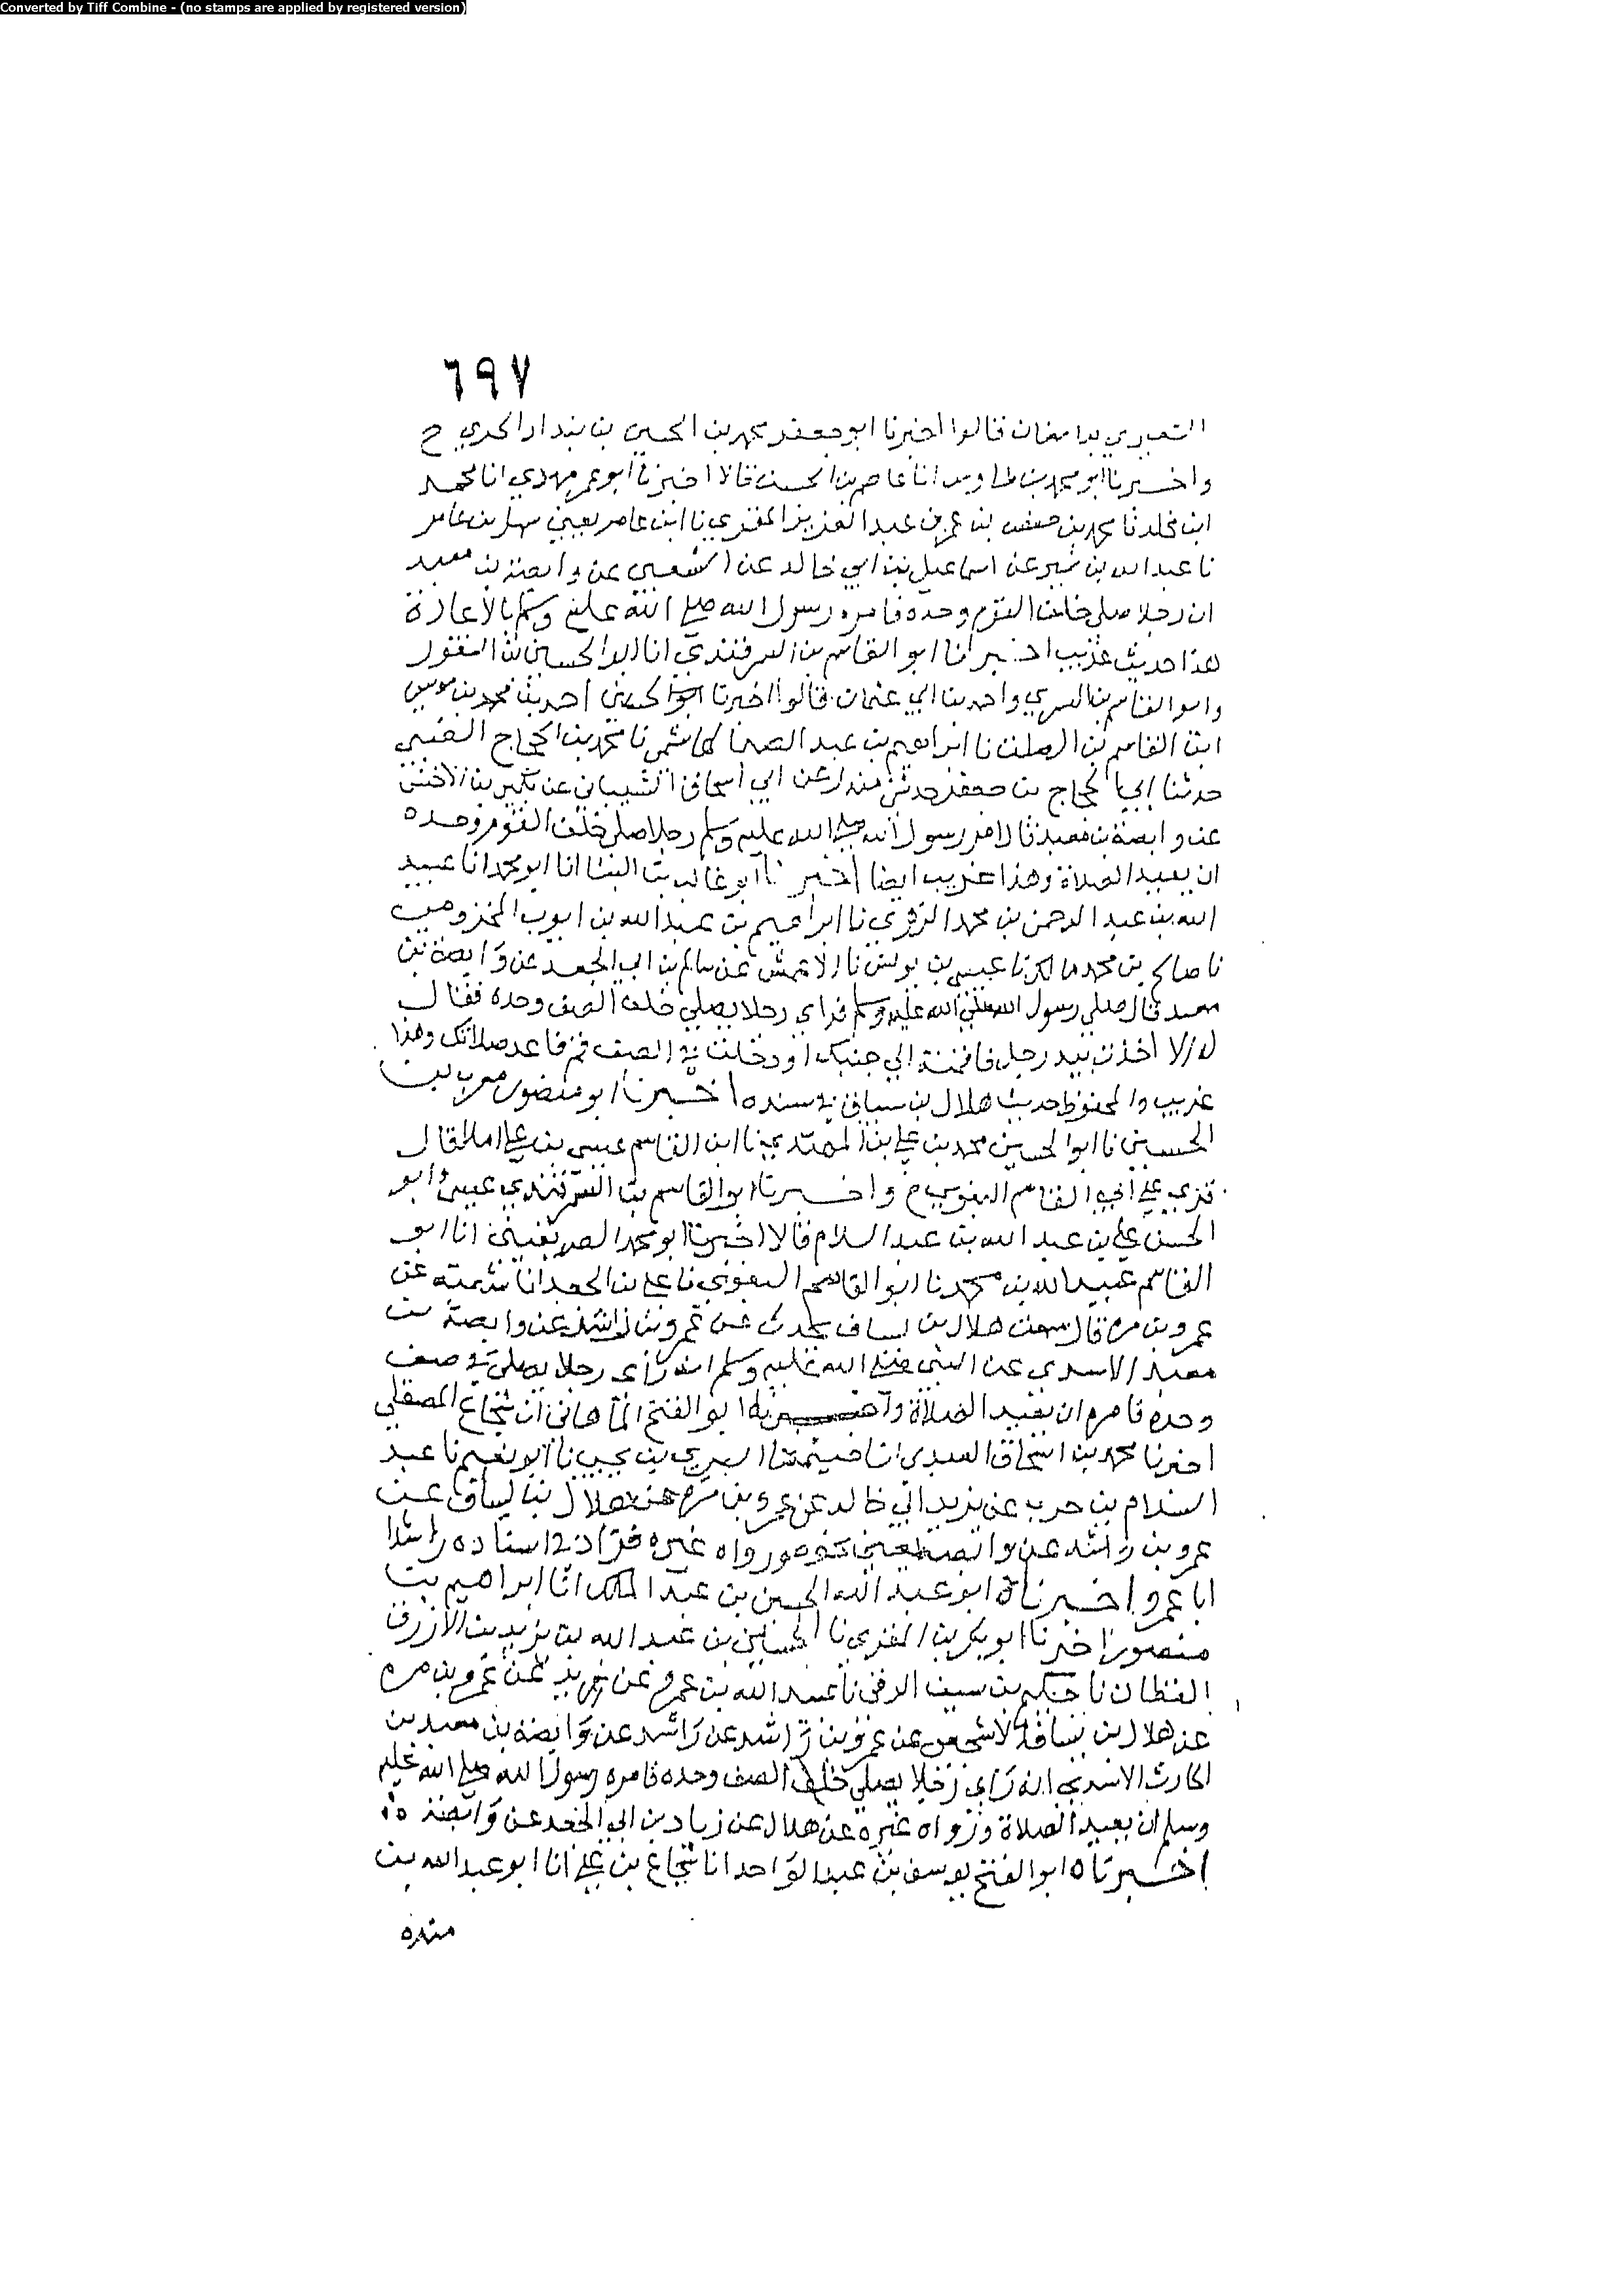 Converted by Tiff Combine - (no stamps are applied by registered version)
٦٩٧
قالوا اخبرنا ابو جعفر محمد بن الحسين بن بندار ح
واخبرنا ابو محمد بن طاوس انا عاصم بن الحسن قالا اخبرنا ابو عمر مهدي انا محمد
ابن مخلد نا محمد بن حفص بن عمر بن عبد العزيز المقري نا ابن عامر يعني سهل بن عامر
نا عبد الله بن نمير عن اسماعيل بن ابي خالد عن الشعبي عن وابصة بن معبد
ان رجلا صلى خلف القوم وحده فامره رسول الله صلى الله عليه وسلم بالاعادة
هذا حديث غريب اخبرنا ابو القاسم بن السمرقندي انا ابو الحسين بن النقور
وابو القاسم بن البسري واحمد بن ابي عثمان قالوا اخبرنا ابو الحسن احمد بن محمد بن موسى
ابن القاسم بن الصلت نا ابراهيم بن عبد الصمد الهاشمي نا محمد بن الحجاج الضبي
حدثنا ابي الحجاج بن جعفر حدثني مندل عن ابي اسحاق الشيباني عن بكير بن الاخنس
عن وابصة بن معبد قال امر رسول الله صلى الله عليه وسلم رجلا صلى خلف القوم وحده
ان يعيد الصلاة وهذا غريب ايضا اخبرنا ابو غالب بن البنا انا ابو محمد انا عبيد
الله بن عبد الرحمن بن محمد الزهري نا ابراهيم بن عبد الله بن ايوب المخزومي
نا صالح بن محمد مالك نا عيسى بن يونس نا الاعمش عن سالم بن ابي الجعد عن وابصة بن
معبد قال صلى رسول الله صلى الله عليه وسلم فراى رجلا يصلي خلف الصف وحده فقال
له الا اخذت بيد رجل فاقمته الى جنبك او دخلت في الصف قم فاعد صلاتك وهذا
غريب والمحفوظ حديث هلال بن يساف في سنده اخبرنا ابو منصور بن
الحسين نا ابو الحسين محمد بن علي بن المهتدي نا ابن القاسم عيسى بن علي املا قال
قري على ابي القاسم البغوي ح واخبرنا ابو القاسم بن السمرقندي عيسى وابو
الحسن علي بن عبد الله بن عبد السلام قالا اخبرنا ابو محمد الصريفيني انا ابو
القاسم عبيد الله بن محمد نا ابو القاسم البغوي نا علي بن الجعد انا شعبة عن
عمرو بن مرة قال سمعت هلال بن يساف يحدث عن عمرو بن راشد عن وابصة بن
معبد الاسدي عن النبي صلى الله عليه وسلم انه راى رجلا يصلي في صف
وحده فامره ان يعيد الصلاة واخبرناه ابو الفتح الماهاني ان شجاع المصقلي
اخبرنا محمد بن اسحاق العبدي انا خيثمة نا السري بن يحيى نا ابو نعيم نا عبد
السلام بن حرب عن يزيد ابي خالد عن عمرو بن مرة عن هلال بن يساف عن
عمرو بن راشد عن وابصة نحوه ورواه غيره فزاد في اسناده راشدا
ابا عمرو اخبرناه ابو عبد الله الحسين بن عبد الملك انا ابراهيم بن
منصور اخبرنا ابو بكر بن المقري نا الحسين بن عبد الله بن يزيد بن الازرق
القطان نا حكيم بن سيف الرقي نا عبيد الله بن عمرو عن زيد عن عمرو بن مرة
عن هلال بن يساف الاشجعي عن عمرو بن راشد عن راشد عن وابصة بن معبد بن
الحارث الاسدي انه راى رجلا يصلي خلف الصف وحده فامره رسول الله صلى الله عليه
وسلم ان يعيد الصلاة ورواه غيره عن هلال عن زياد بن ابي الجعد عن وابصة
اخبرناه ابو الفتح يوسف بن عبد الواحد انا شجاع بن علي انا ابو عبد الله بن
منده